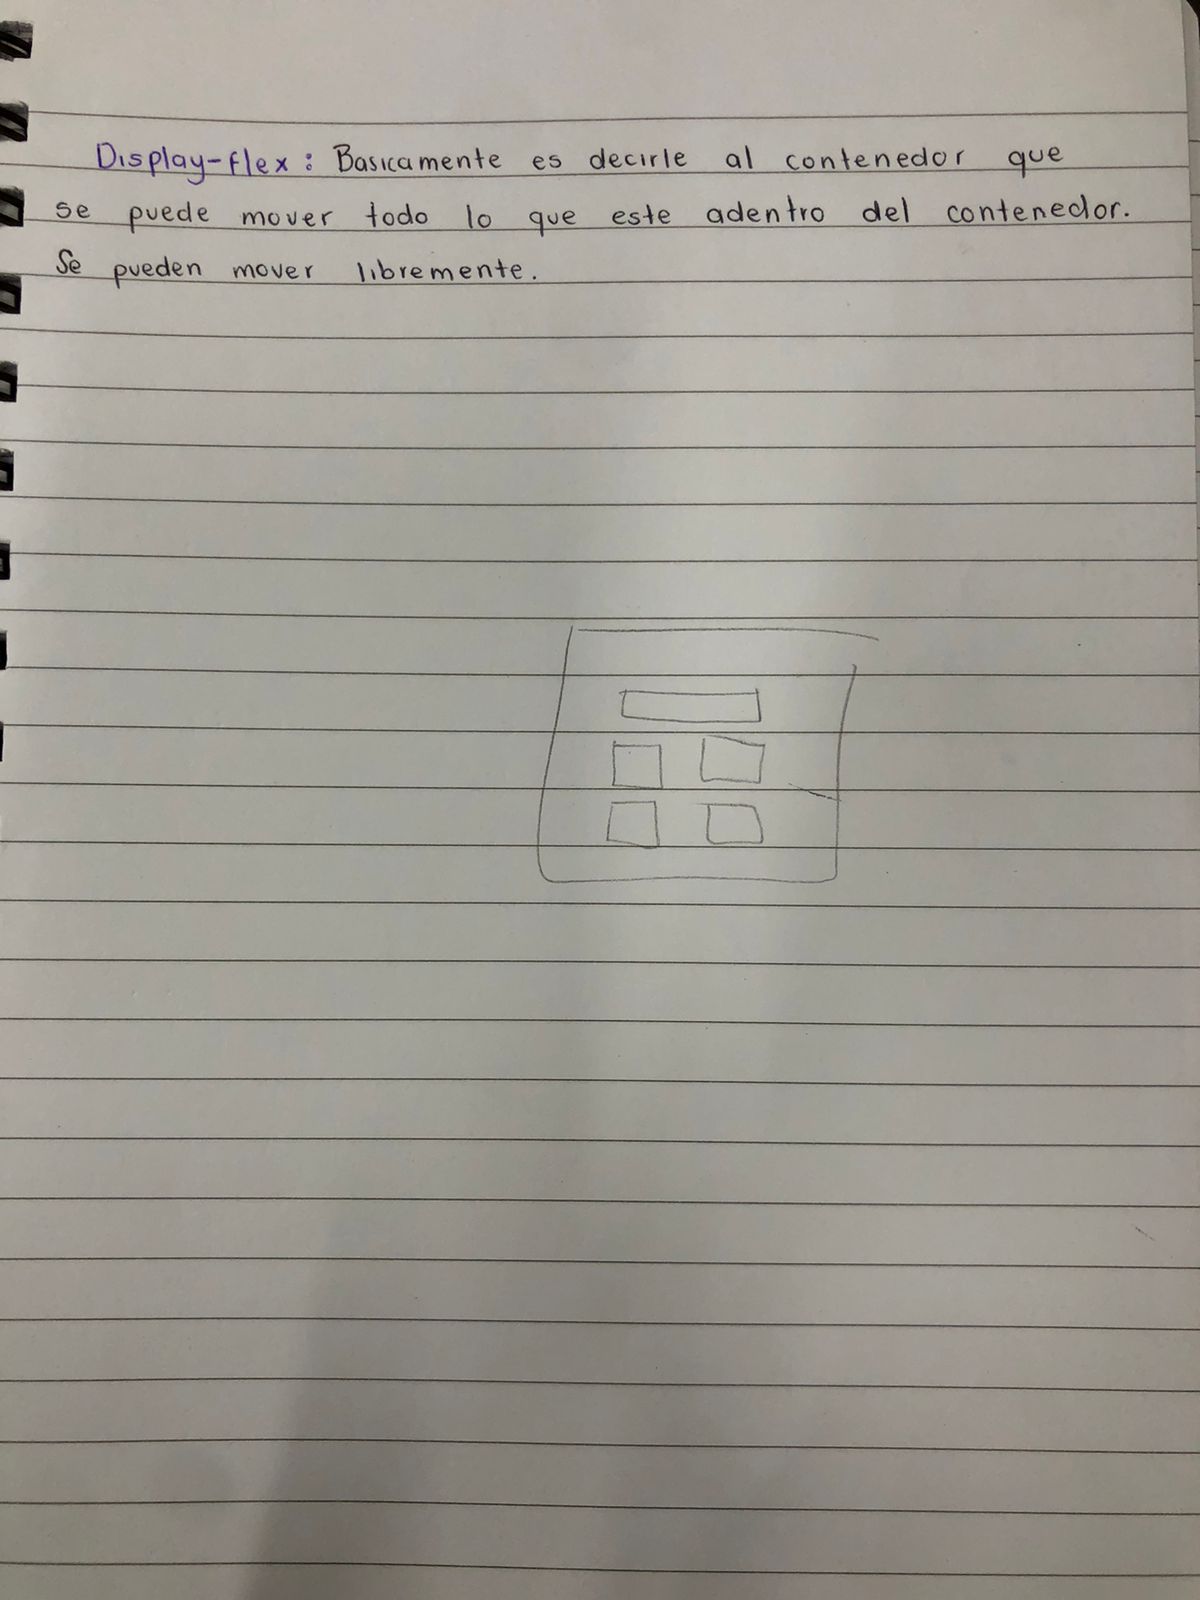 Display-flex: Basicamente es decirle al contenedor que
se puede mover todo lo que este adentro del contenedor.
Se pueden mover libremente.